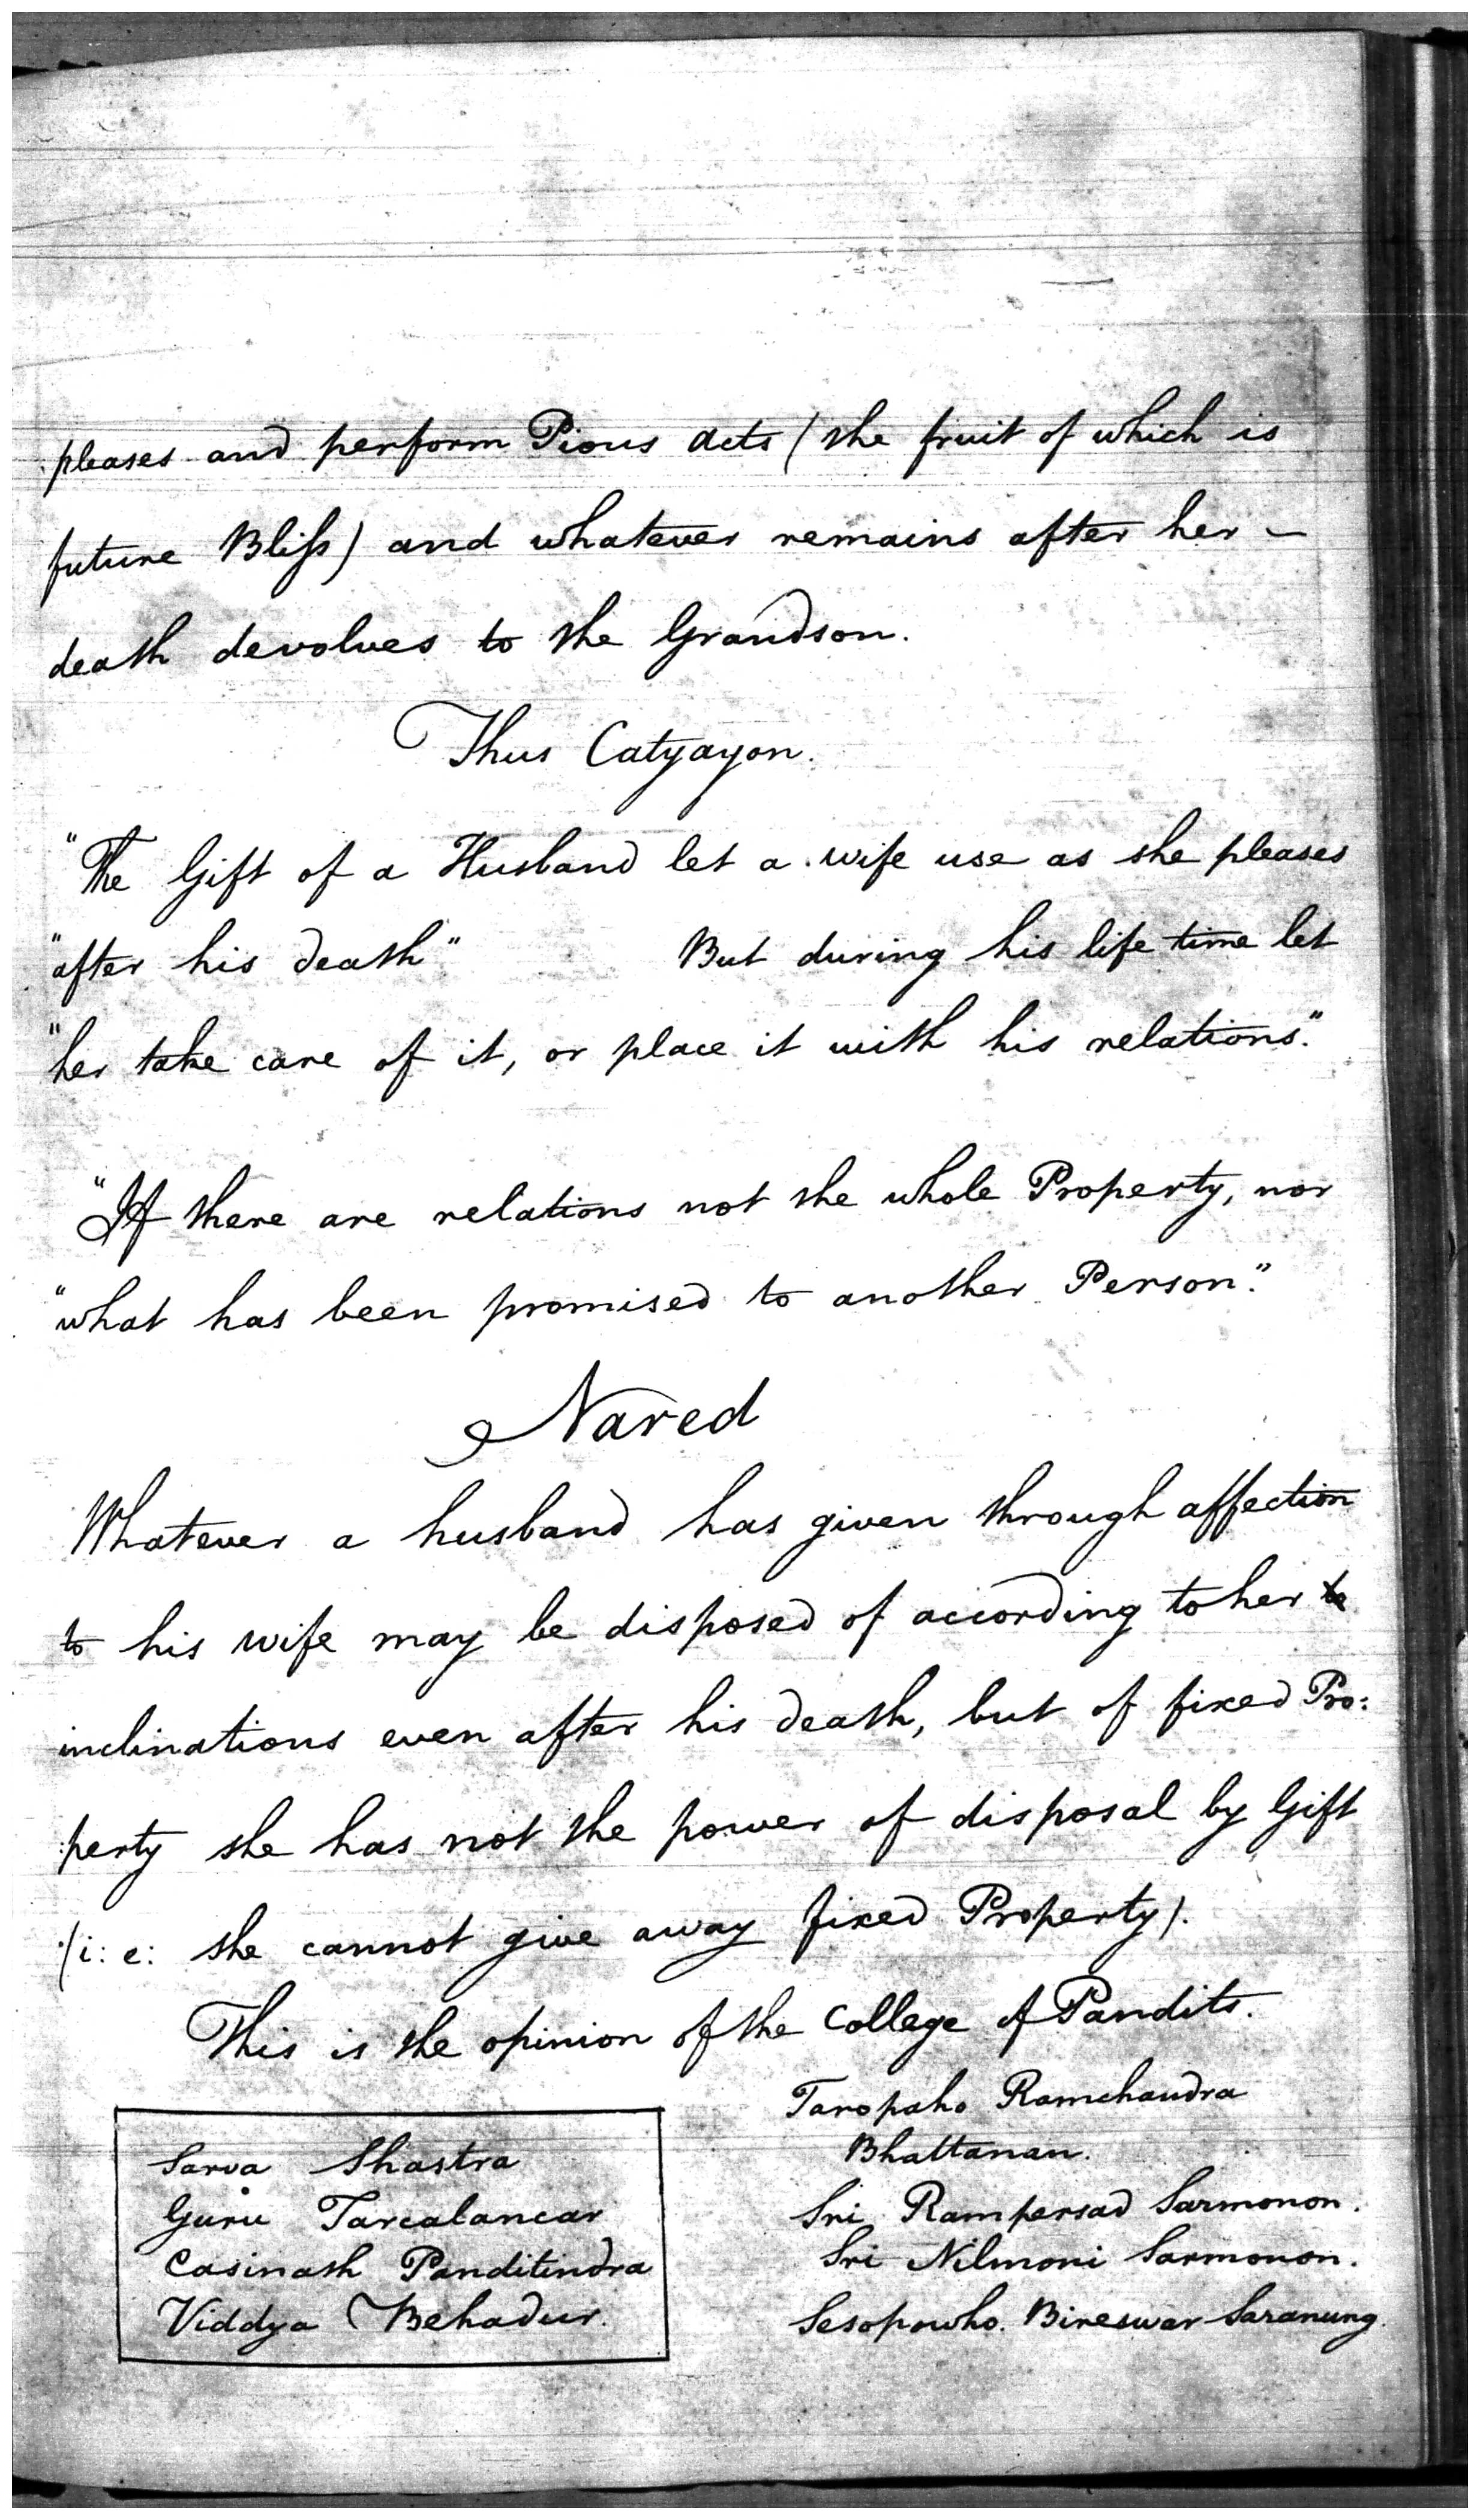 pleases and perform Pious acts (the fruit of which is
future Bliſs) and whatever remains after her –
death devolves to the Grandson.
Thus Catyayon.
"The Gift of a Husband let a wife use as she pleases
"after his death" But during his life time let
"her take care of it, or place it with his relations."
"If there are relations not the whole Property, nor
"what has been promised to another Person."
Nared
Whatever a husband has given through affection
to his wife may be disposed of according to her to
inclinations even after his death, but of fixed Pro:
perty she has not the power of disposal by Gift
(i: e: she cannot give away fixed Property).
This is the opinion of the College of Pandits.
Taropaho Ramchandra
Bhattanan.
Sri Rampersad Sarmonon.
Sri Nilmoni Sarmonon.
Sesopowho. Bireswar Saranung.
Sarva Shastra
Guru Tarcalancar
Casinash Panditindra
Viddya Behadur.